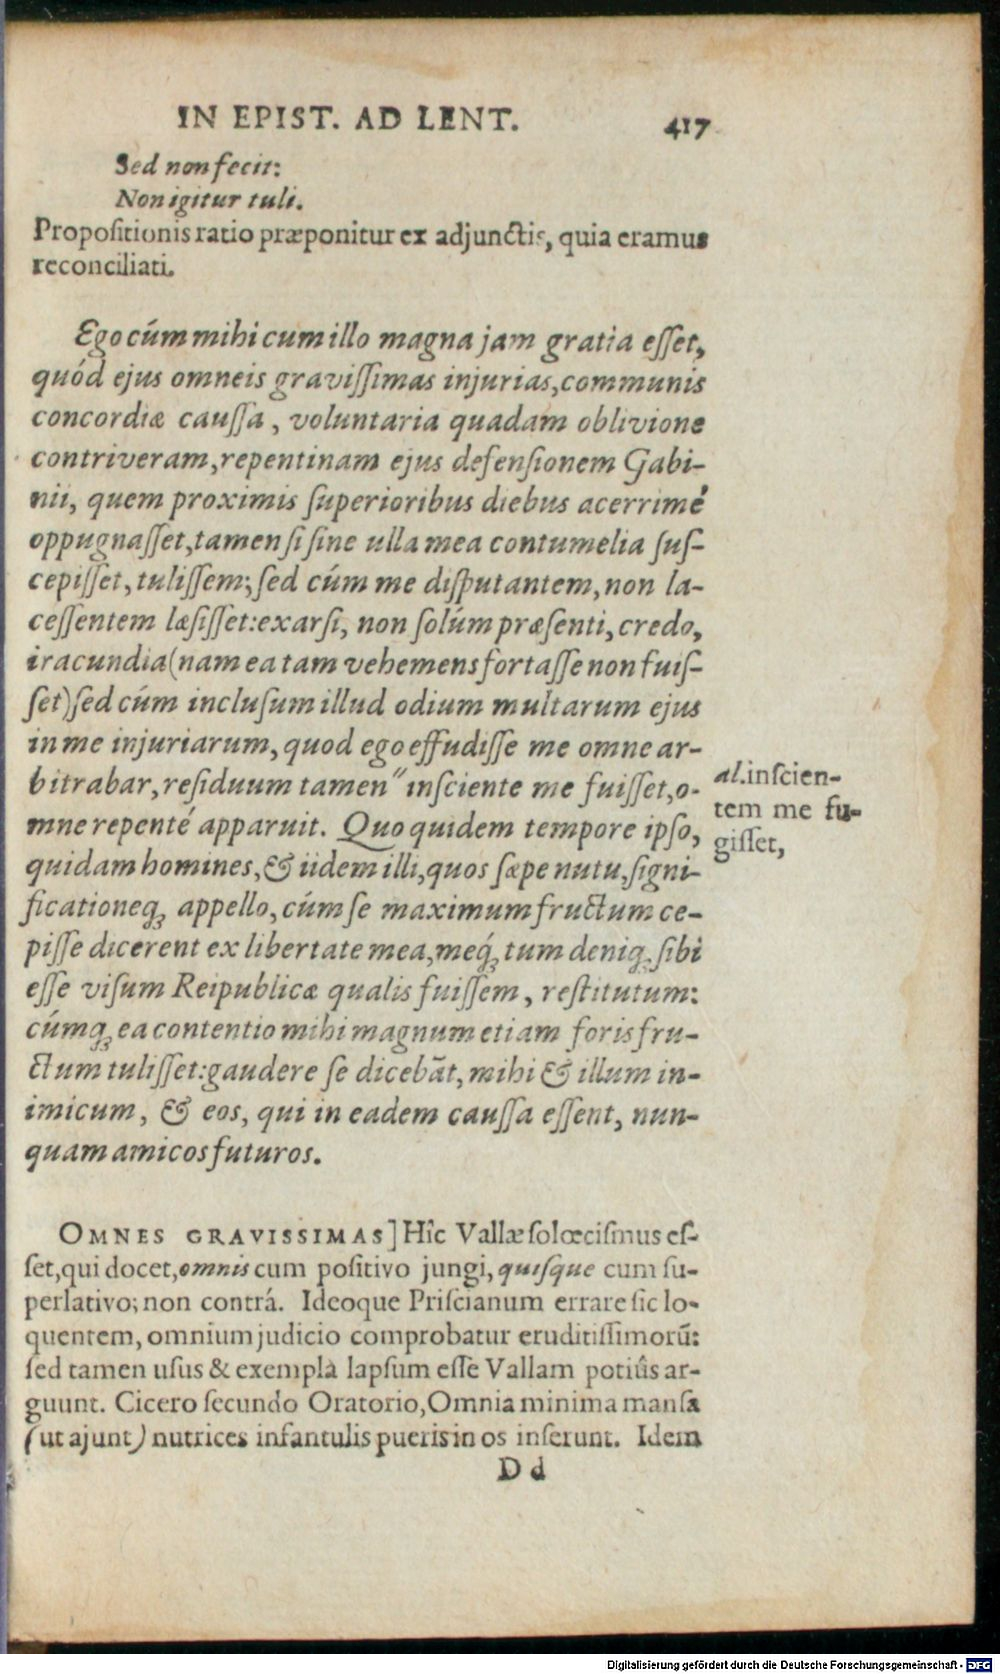 IN EPIST. AD LENT. 417
Sed non fecit:
Non igitur tuli.
Propositionis ratio præponitur ex adjunctis, quia eramus
reconciliati.
Ego cúm mihi cum illo magna jam gratia eſſet,
quód ejus omneis graviſſimas injurias, communis
concordiæ cauſſa, voluntaria quadam oblivione
contriveram, repentinam ejus defenſionem Gabi-
nii, quem proximis ſuperioribus diebus acerrimé
oppugnaſſet, tamen ſi ſine ulla mea contumelia ſuſ-
cepiſſet, tuliſſem; ſed cúm me diſputantem, non la-
ceſſentem læſiſſet: exarſi, non ſolúm præſenti, credo,
iracundia (nam ea tam vehemens fortaſſe non fuiſ-
ſet) ſed cúm incluſum illud odium multarum ejus
in me injuriarum, quod ego effudiſſe me omne ar-
bitrabar, reſiduum tamen " inſciente me fuiſſet, o-
mne repenté apparuit. Quo quidem tempore ipſo,
quidam homines, & iidem illi, quos ſæpe nutu, ſigni-
ficationeq; appello, cúm ſe maximum fructum ce-
piſſe dicerent ex libertate mea, meq́; tum deniq; ſibi
eſſe viſum Reipublicæ qualis fuiſſem, reſtitutum:
cúmq; ea contentio mihi magnum etiam foris fru-
ctum tuliſſet: gaudere ſe dicebãt, mihi & illum in-
imicum, & eos, qui in eadem cauſſa eſſent, nun-
quam amicos futuros.
al. inſcien-
tem me fu-
giſſet,
OMNES GRAVISSIMAS] Hîc Vallæ ſolœciſmus eſ-
ſet, qui docet, omnis cum poſitivo jungi, quiſque cum ſu-
perlativo; non contrá. Ideoque Priſcianum errare ſic lo-
quentem, omnium judicio comprobatur eruditiſſimorũ:
ſed tamen uſus & exempla lapſum eſſe Vallam potiùs ar-
guunt. Cicero ſecundo Oratorio, Omnia minima manſa
(ut ajunt) nutrices infantulis pueris in os inſerunt. Idem
D d
Digitalisierung gefördert durch die Deutsche Forschungsgemeinschaft - DFG